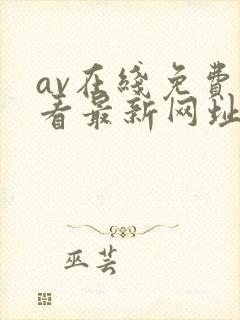 av在綫免費
看最新网址
巫芸